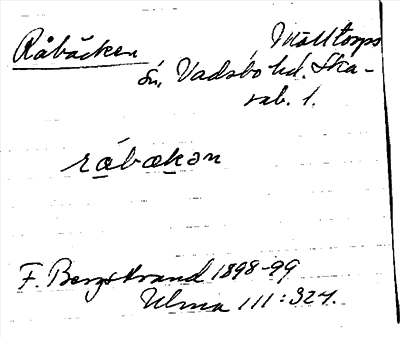 Råbäcken Mölltorps
sn, Vadsbo hd. Ska-
rab. l.
råbækən
F. Bergstrand 1898-99
Ulma 111:324.